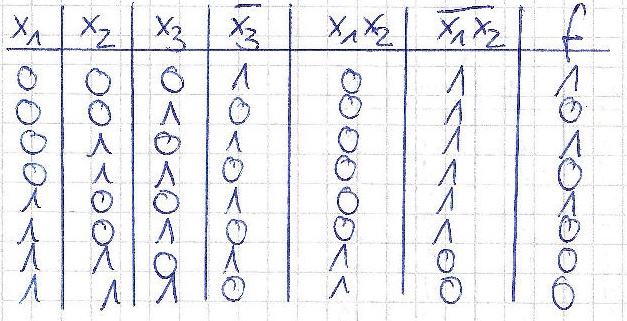 x₁ x₂ x₃ x̅₃ x₁x₂ x̅₁x̅₂ f
0 0 0 1 0 1 1
0 0 1 0 0 1 0
0 1 0 1 0 1 1
0 1 1 0 0 1 0
1 0 0 1 0 1 1
1 0 1 0 0 1 0
1 1 0 1 1 0 0
1 1 1 0 1 0 0